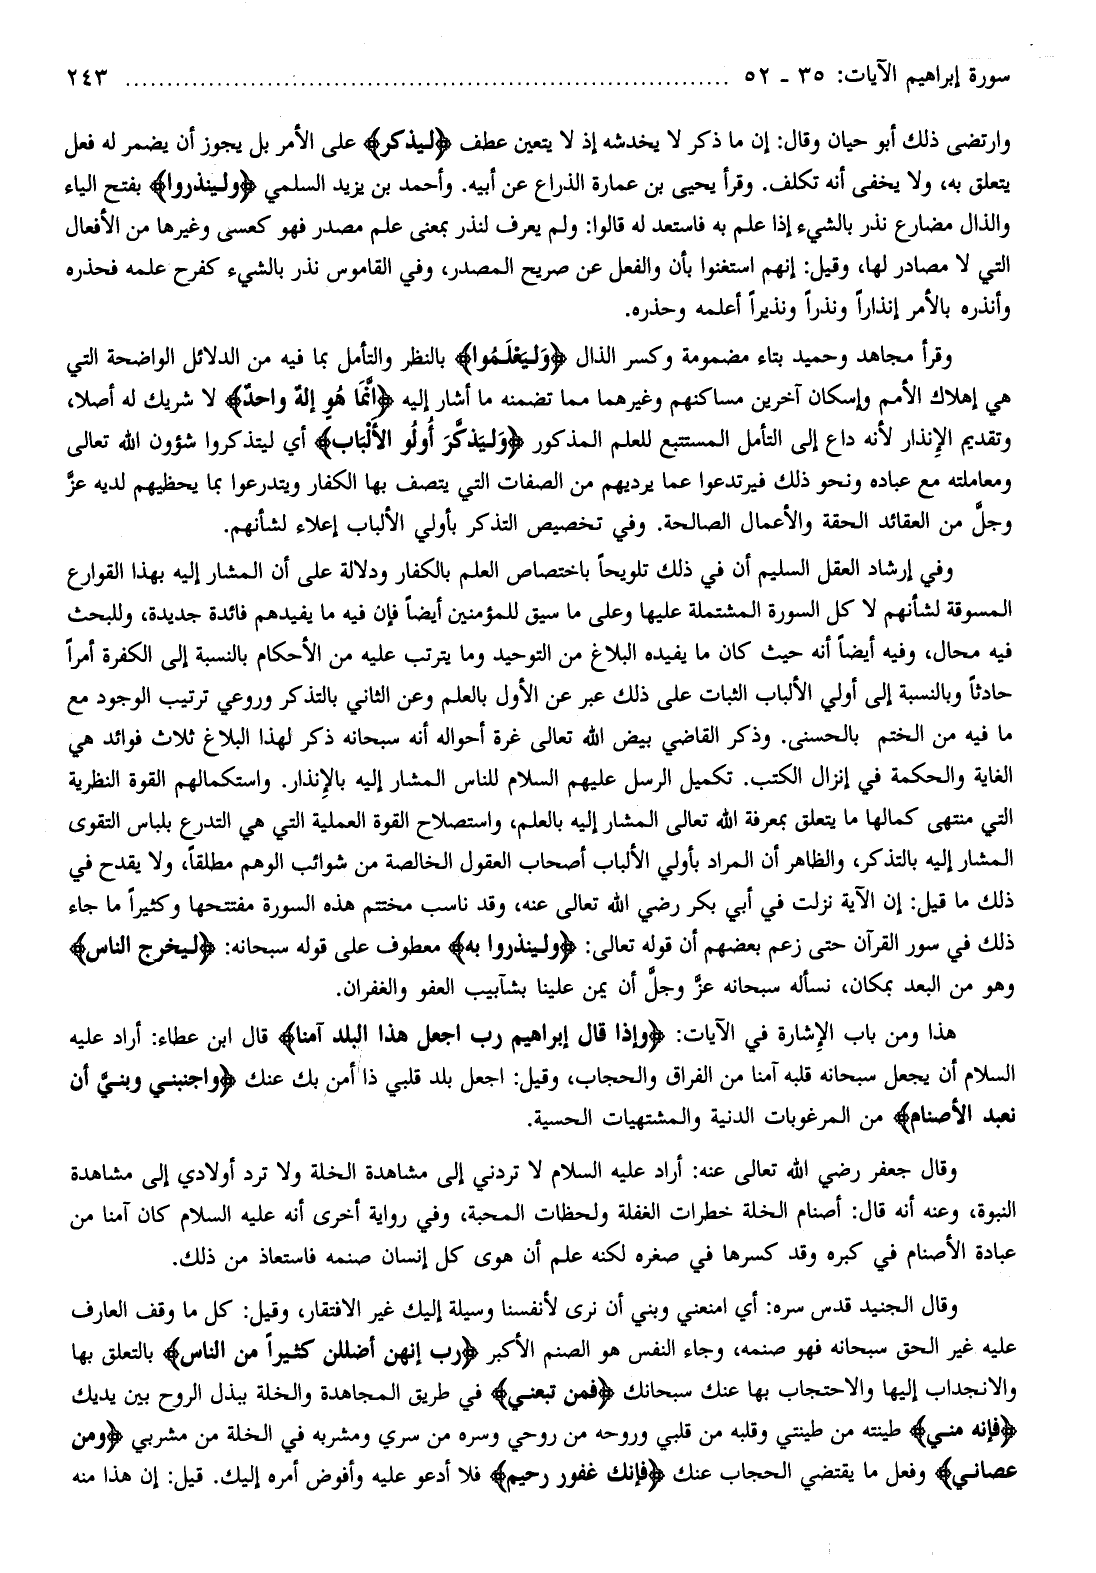 سورة إبراهيم الآيات: ٣٥ ـ ٥٢ ........................................................................ ٢٤٣
وارتضى ذلك أبو حيان وقال: إن ما ذكر لا يخدشه إذ لا يتعين عطف ﴿ليذكر﴾ على الأمر بل يجوز أن يضمر له فعل
يتعلق به، ولا يخفى أنه تكلف. وقرأ يحيى بن عمارة الذراع عن أبيه. وأحمد بن يزيد السلمي ﴿ولينذروا﴾ بفتح الياء
والذال مضارع نذر بالشيء إذا علم به فاستعد له قالوا: ولم يعرف لنذر بمعنى علم مصدر فهو كعسى وغيرها من الأفعال
التي لا مصادر لها، وقيل: إنهم استغنوا بأن والفعل عن صريح المصدر، وفي القاموس نذر بالشيء كفرح علمه فحذره
وأنذره بالأمر إنذاراً ونذراً ونذيراً أعلمه وحذره.
وقرأ مجاهد وحميد بتاء مضمومة وكسر الذال ﴿وَلِيَعْلَمُوا﴾ بالنظر والتأمل بما فيه من الدلائل الواضحة التي
هي إهلاك الأمم وإسكان آخرين مساكنهم وغيرهما مما تضمنه ما أشار إليه ﴿أَنَّمَا هُوِ إلهٌ واحدٌ﴾ لا شريك له أصلا،
وتقديم الإِنذار لأنه داع إلى التأمل المستتبع للعلم المذكور ﴿وَلِيَذكَّرَ أُولُو الأَلْبَاب﴾ أي ليتذكروا شؤون الله تعالى
ومعاملته مع عباده ونحو ذلك فيرتدعوا عما يرديهم من الصفات التي يتصف بها الكفار ويتدرعوا بما يحظيهم لديه عزَّ
وجلَّ من العقائد الحقة والأعمال الصالحة. وفي تخصيص التذكر بأولي الألباب إعلاء لشأنهم.
وفي إرشاد العقل السليم أن في ذلك تلويحاً باختصاص العلم بالكفار ودلالة على أن المشار إليه بهذا القوارع
المسوقة لشأنهم لا كل السورة المشتملة عليها وعلى ما سيق للمؤمنين أيضاً فإن فيه ما يفيدهم فائدة جديدة، وللبحث
فيه محال، وفيه أيضاً أنه حيث كان ما يفيده البلاغ من التوحيد وما يترتب عليه من الأحكام بالنسبة إلى الكفرة أمراً
حادثاً وبالنسبة إلى أولي الألباب الثبات على ذلك عبر عن الأول بالعلم وعن الثاني بالتذكر وروعي ترتيب الوجود مع
ما فيه من الختم بالحسنى. وذكر القاضي بيض الله تعالى غرة أحواله أنه سبحانه ذكر لهذا البلاغ ثلاث فوائد هي
الغاية والحكمة في إنزال الكتب. تكميل الرسل عليهم السلام للناس المشار إليه بالإِنذار. واستكمالهم القوة النظرية
التي منتهى كمالها ما يتعلق بمعرفة الله تعالى المشار إليه بالعلم، واستصلاح القوة العملية التي هي التدرع بلباس التقوى
المشار إليه بالتذكر، والظاهر أن المراد بأولي الألباب أصحاب العقول الخالصة من شوائب الوهم مطلقاً، ولا يقدح في
ذلك ما قيل: إن الآية نزلت في أبي بكر رضي الله تعالى عنه، وقد ناسب مختتم هذه السورة مفتتحها وكثيراً ما جاء
ذلك في سور القرآن حتى زعم بعضهم أن قوله تعالى: ﴿ولينذروا به﴾ معطوف على قوله سبحانه: ﴿ليخرج الناس﴾
وهو من البعد بمكان، نسأله سبحانه عزَّ وجلَّ أن يمن علينا بشآبيب العفو والغفران.
هذا ومن باب الإِشارة في الآيات: ﴿وإذا قال إبراهيم رب اجعل هذا البلد آمنا﴾ قال ابن عطاء: أراد عليه
السلام أن يجعل سبحانه قلبه آمنا من الفراق والحجاب، وقيل: اجعل بلد قلبي ذا أمن بك عنك ﴿واجنبني وبنيَّ أن
نعبد الأصنام﴾ من المرغوبات الدنية والمشتهيات الحسية.
وقال جعفر رضي الله تعالى عنه: أراد عليه السلام لا تردني إلى مشاهدة الخلة ولا ترد أولادي إلى مشاهدة
النبوة، وعنه أنه قال: أصنام الخلة خطرات الغفلة ولحظات المحبة، وفي رواية أخرى أنه عليه السلام كان آمنا من
عبادة الأصنام في كبره وقد كسرها في صغره لكنه علم أن هوى كل إنسان صنمه فاستعاذ من ذلك.
وقال الجنيد قدس سره: أي امنعني وبني أن نرى لأنفسنا وسيلة إليك غير الافتقار، وقيل: كل ما وقف العارف
عليه غير الحق سبحانه فهو صنمه، وجاء النفس هو الصنم الأكبر ﴿رب إنهن أضللن كثيراً من الناس﴾ بالتعلق بها
والانجداب إليها والاحتجاب بها عنك سبحانك ﴿فمن تبعني﴾ في طريق المجاهدة والخلة ببذل الروح بين يديك
﴿فإنه مني﴾ طينته من طينتي وقلبه من قلبي وروحه من روحي وسره من سري ومشربه في الخلة من مشربي ﴿ومن
عصاني﴾ وفعل ما يقتضي الحجاب عنك ﴿فإنك غفور رحيم﴾ فلا أدعو عليه وأفوض أمره إليك. قيل: إن هذا منه